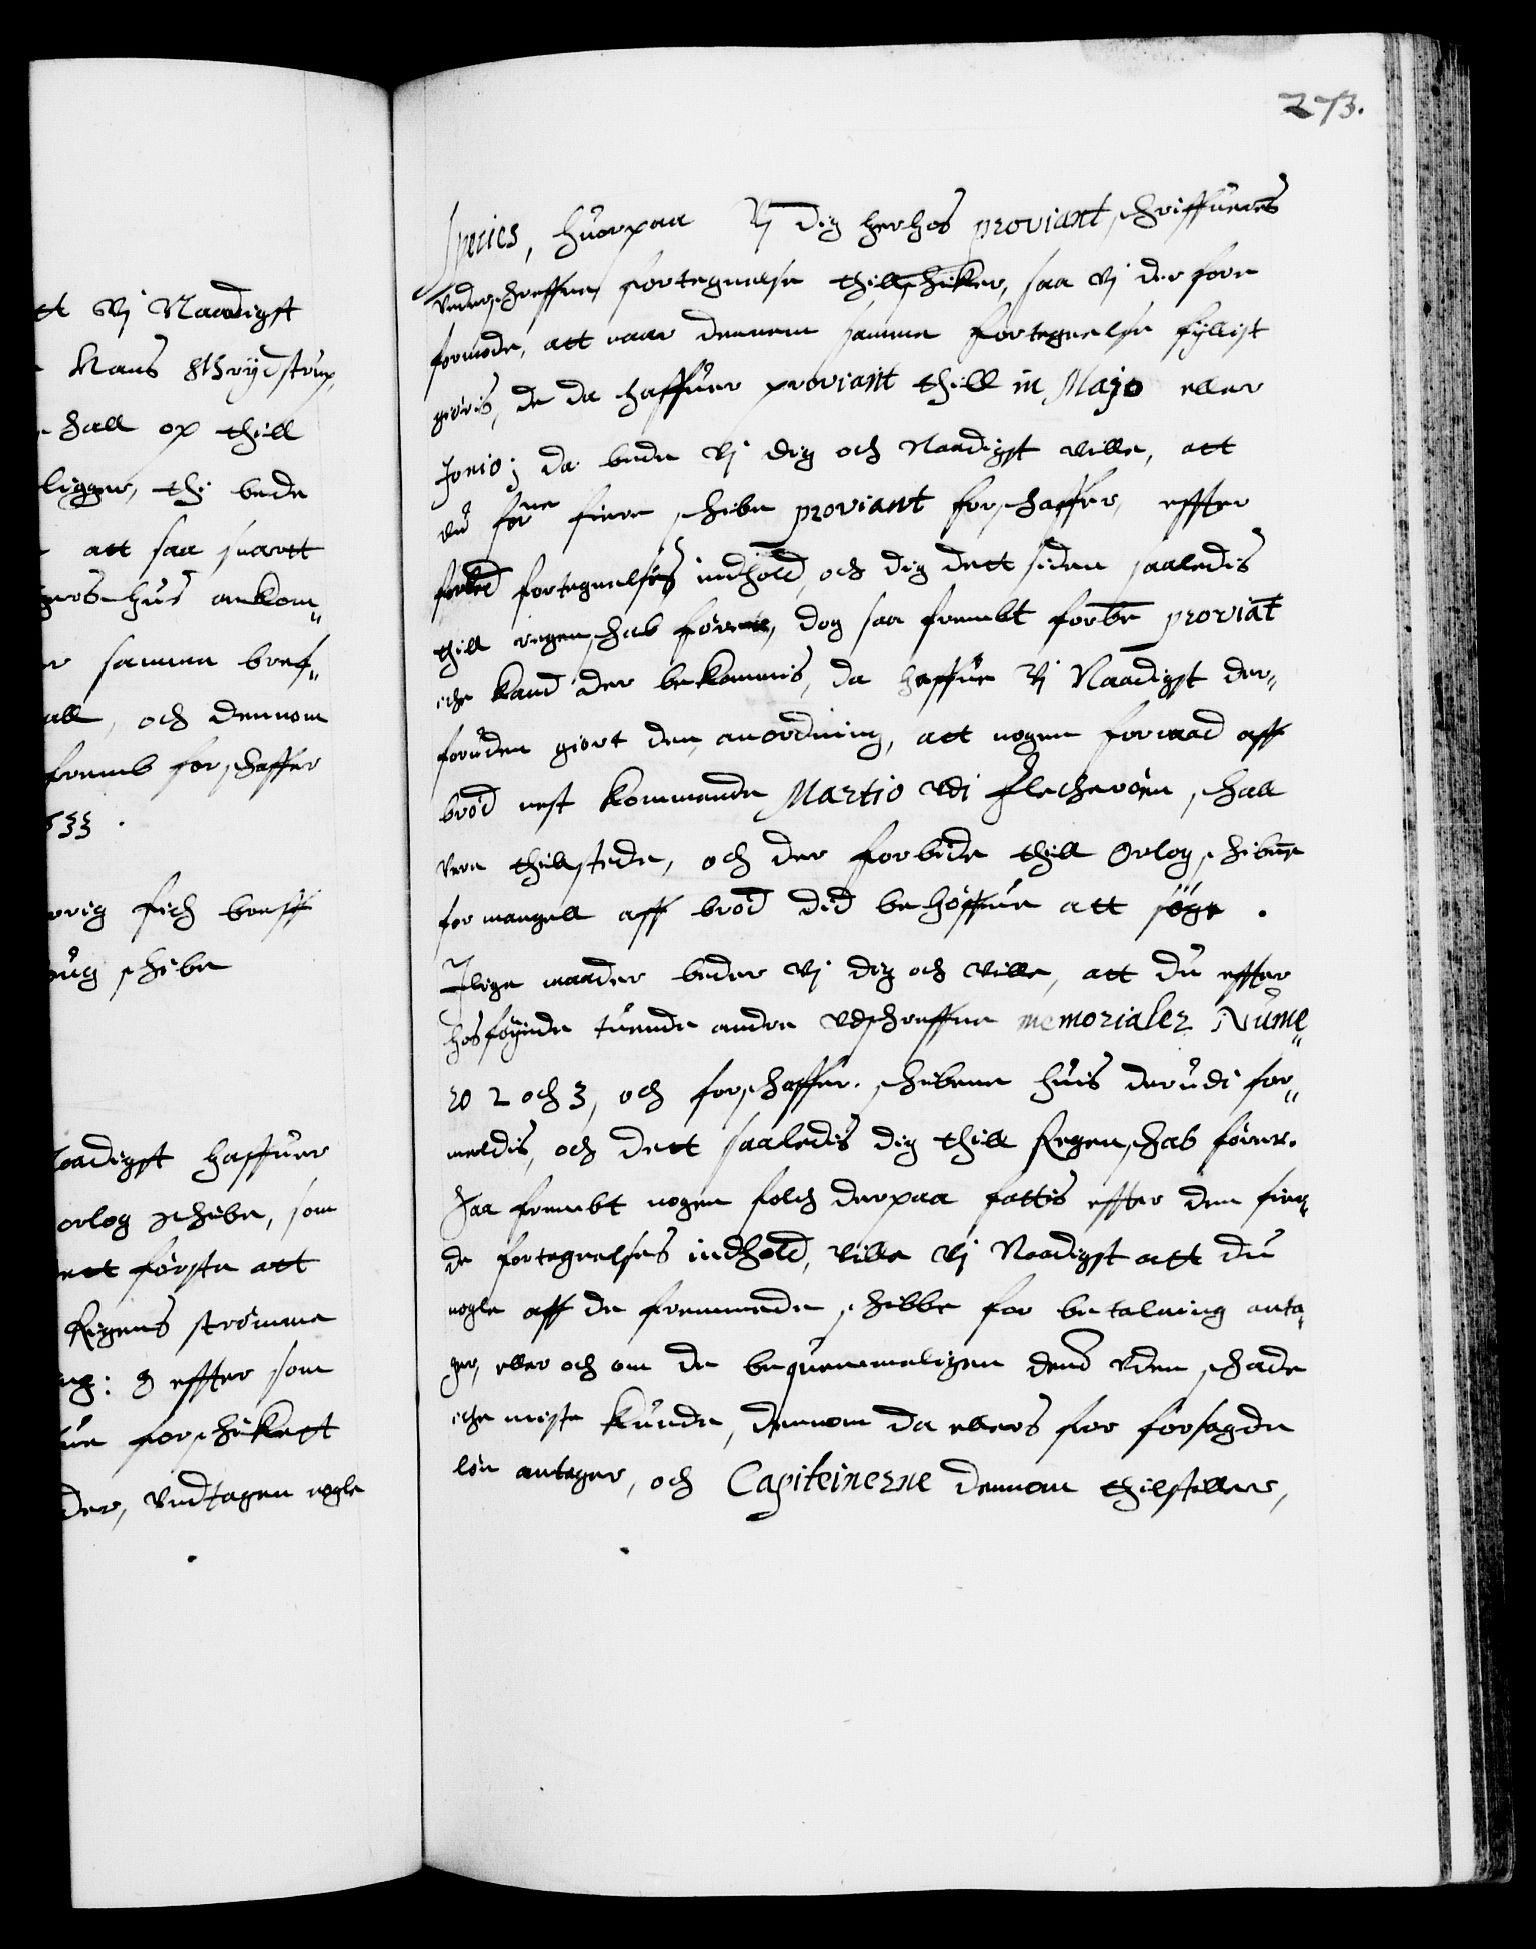 273.
tt Vj Naadigst
Hans Strydstrup
shall op thill
ligger, thi bede
att saa snartt
gers-hus ankom„
r samme bref„
all, och dennom
fremb forschaffer
633.
rig fich breff
oug schibe
Naadigst haffuer
orlog schibe, som
ett første att
Rigens strømme
ng: och effter som
ue forschikett
der, vndtagen nogle
Species, huorpaa Vj dig herhos proviant schriffuerens
Vnderschreffne fortegnelse thillschiker, saa Vj der fore
formode, att naar dennem samme fortegnelse fyllist
giøris, de da haffuer proviant thill in Majo eller
Junio; da bede Vj dig och Naadigst ville, att
du forne fiere schibe proviant forschaffer, effter
forbed fortegnelsis indhold, och dig dett siden saaledis
thill regenschab fører, dog saa frembt forbe proviāt
iche kand der bekommis, da haffue Vj Naadigst der„
foruden giort den anordning, att nogen forraad aff
brød nest kommende Martio vdi Flecherøen, schall
vere thillstede, och der forbide thill Orlog schibene
for mangell aff brød did behøffue att søge.
Ilige maader beder Vj dig och ville, att du effter
hosføyede tuende andre vdschreffne memorialer Nume„
ro 2 och 3, och forschaffer schibene huis derudi for„
meldis, och dett saaledis dig thill Regenschab fører.
Saa frembt nogen folch derpaa fattis effter den fier„
de fortegnelses indhold, ville Vj Naadigst att du
nogle aff de fremmede schibbe for betalning anta„
ger, eller och om de bequemmeligen dend vden schade
iche miste kunde, dennom da ellers for forsagde
løn antager, och Capiteinerne dennom thilstiller,